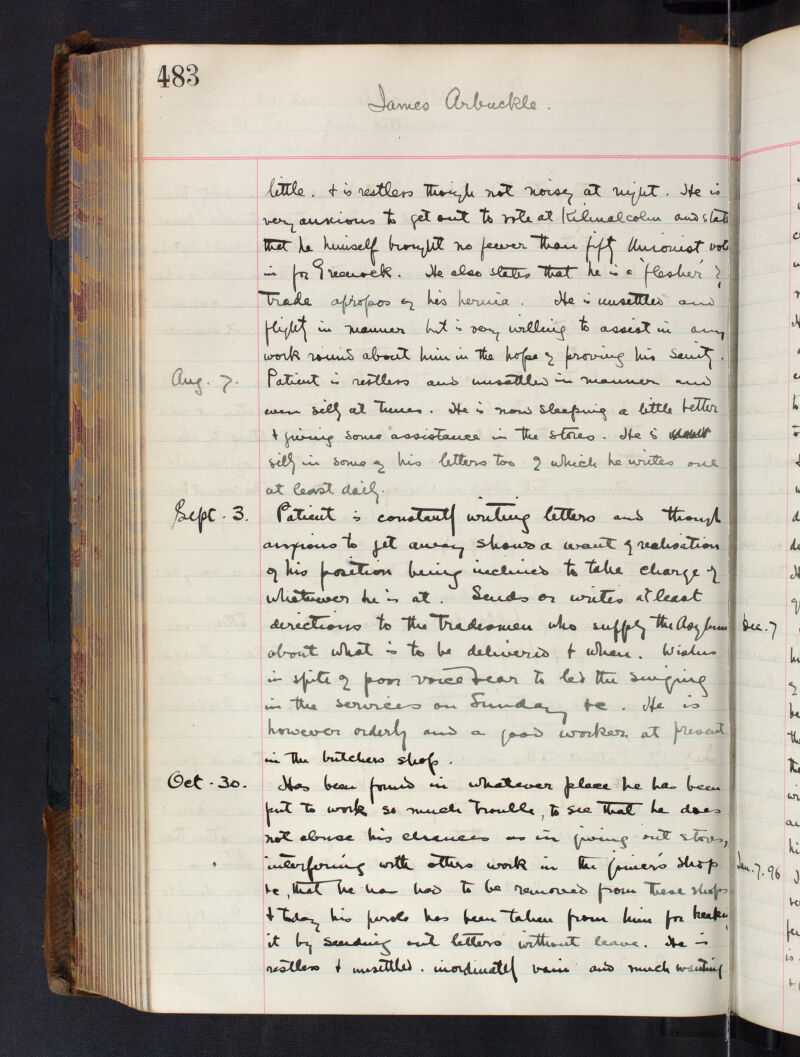 483
James Arbuckle.
little. & is restless though not noisy at night. He is
very anxious to get out to vote at Kilmalcolm and stat
that he himself brought no fewer than fifty Unionist vot
in for Greenock. He also states that he is a 'flesher'
trade apropos of his hernia. He is unsettled and
flighty in manner but is very willing to assist in any
work round about him in the hope of proving his sanity.
Aug. 7. Patient is restless and unsettled in manner and
even silly at times. He is now sleeping a little better
& giving some assistance in the stores. He is
silly in some of his letters too of which he writes one
at least daily.
Sept. 3. Patient is constantly writing letters and though
anxious to get away shows a want of realisation
of his position being inclined to take charge of
whatever he is at. Sends or writes at least
directions to the tradesmen who supply the Asylum
about what is to be delivered & when. Wishes
in spite of poor voice & ear to led the singing
in the services on Sunday &c. He is
however orderly and a good worker, at present
in the butchers shop.
Oct. 30. Has been found in whatever place he has been
put to work so much trouble, to see that he does
not abuse his chances as in giving out stores,
interfering with others work in the joiner's shop
&c, that he has had to be removed from these shops
& today his parole has been taken from him for
it by sending out letters without leave. He is
restless & unsettled. inordinately vain and much wanting
Dec. 7
Jan. 7. 96